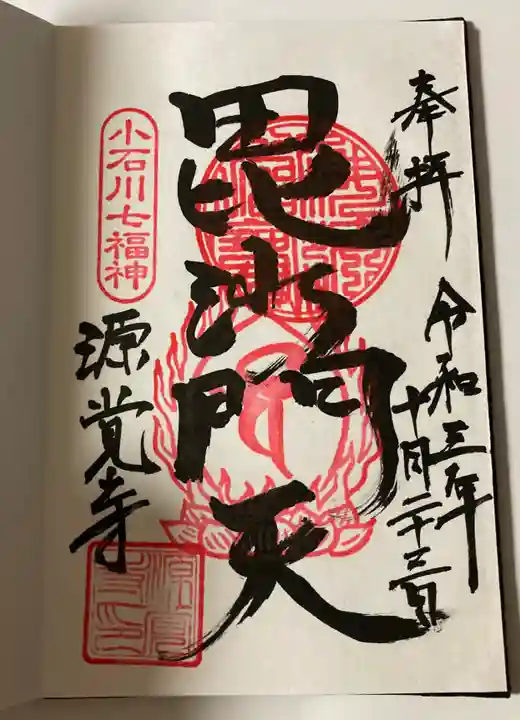 奉拝
令和三年
十月二十三日
毘沙門天
小石川七福神
源覚寺